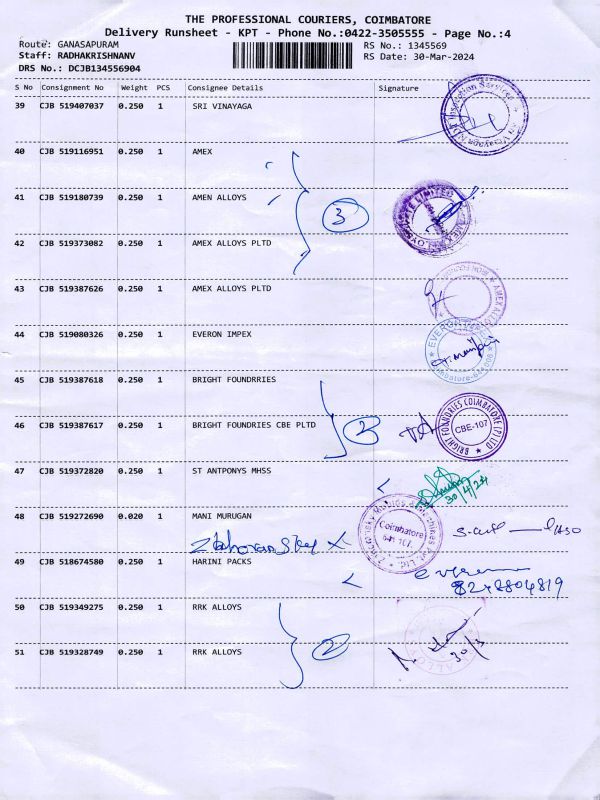 THE PROFESSIONAL COURIERS, COIMBATORE
Delivery Runsheet - KPT - Phone No.:0422-3505555 - Page No.:4
Route: GANASAPURAM RS No.: 1345569
Staff: RADHAKRISHNANV RS Date: 30-Mar-2024
DRS No.: DCJB134556904
S No Consignment No Weight PCS Consignee Details Signature
39 CJB 519407037 0.250 1 SRI VINAYAGA
40 CJB 519116951 0.250 1 AMEX
41 CJB 519180739 0.250 1 AMEN ALLOYS
3
42 CJB 519373082 0.250 1 AMEX ALLOYS PLTD
43 CJB 519387626 0.250 1 AMEX ALLOYS PLTD
44 CJB 519080326 0.250 1 EVERON IMPEX
45 CJB 519387618 0.250 1 BRIGHT FOUNDRRIES
46 CJB 519387617 0.250 1 BRIGHT FOUNDRIES CBE PLTD
BRIGHT FOUNDRIES COIMBATORE (P) LTD
CBE-107
47 CJB 519372820 0.250 1 ST ANTPONYS MHSS
30/4/24
48 CJB 519272690 0.020 1 MANI MURUGAN
Coimbatore
49 CJB 518674580 0.250 1 HARINI PACKS
8248804819
50 CJB 519349275 0.250 1 RRK ALLOYS
2
51 CJB 519328749 0.250 1 RRK ALLOYS
30/3